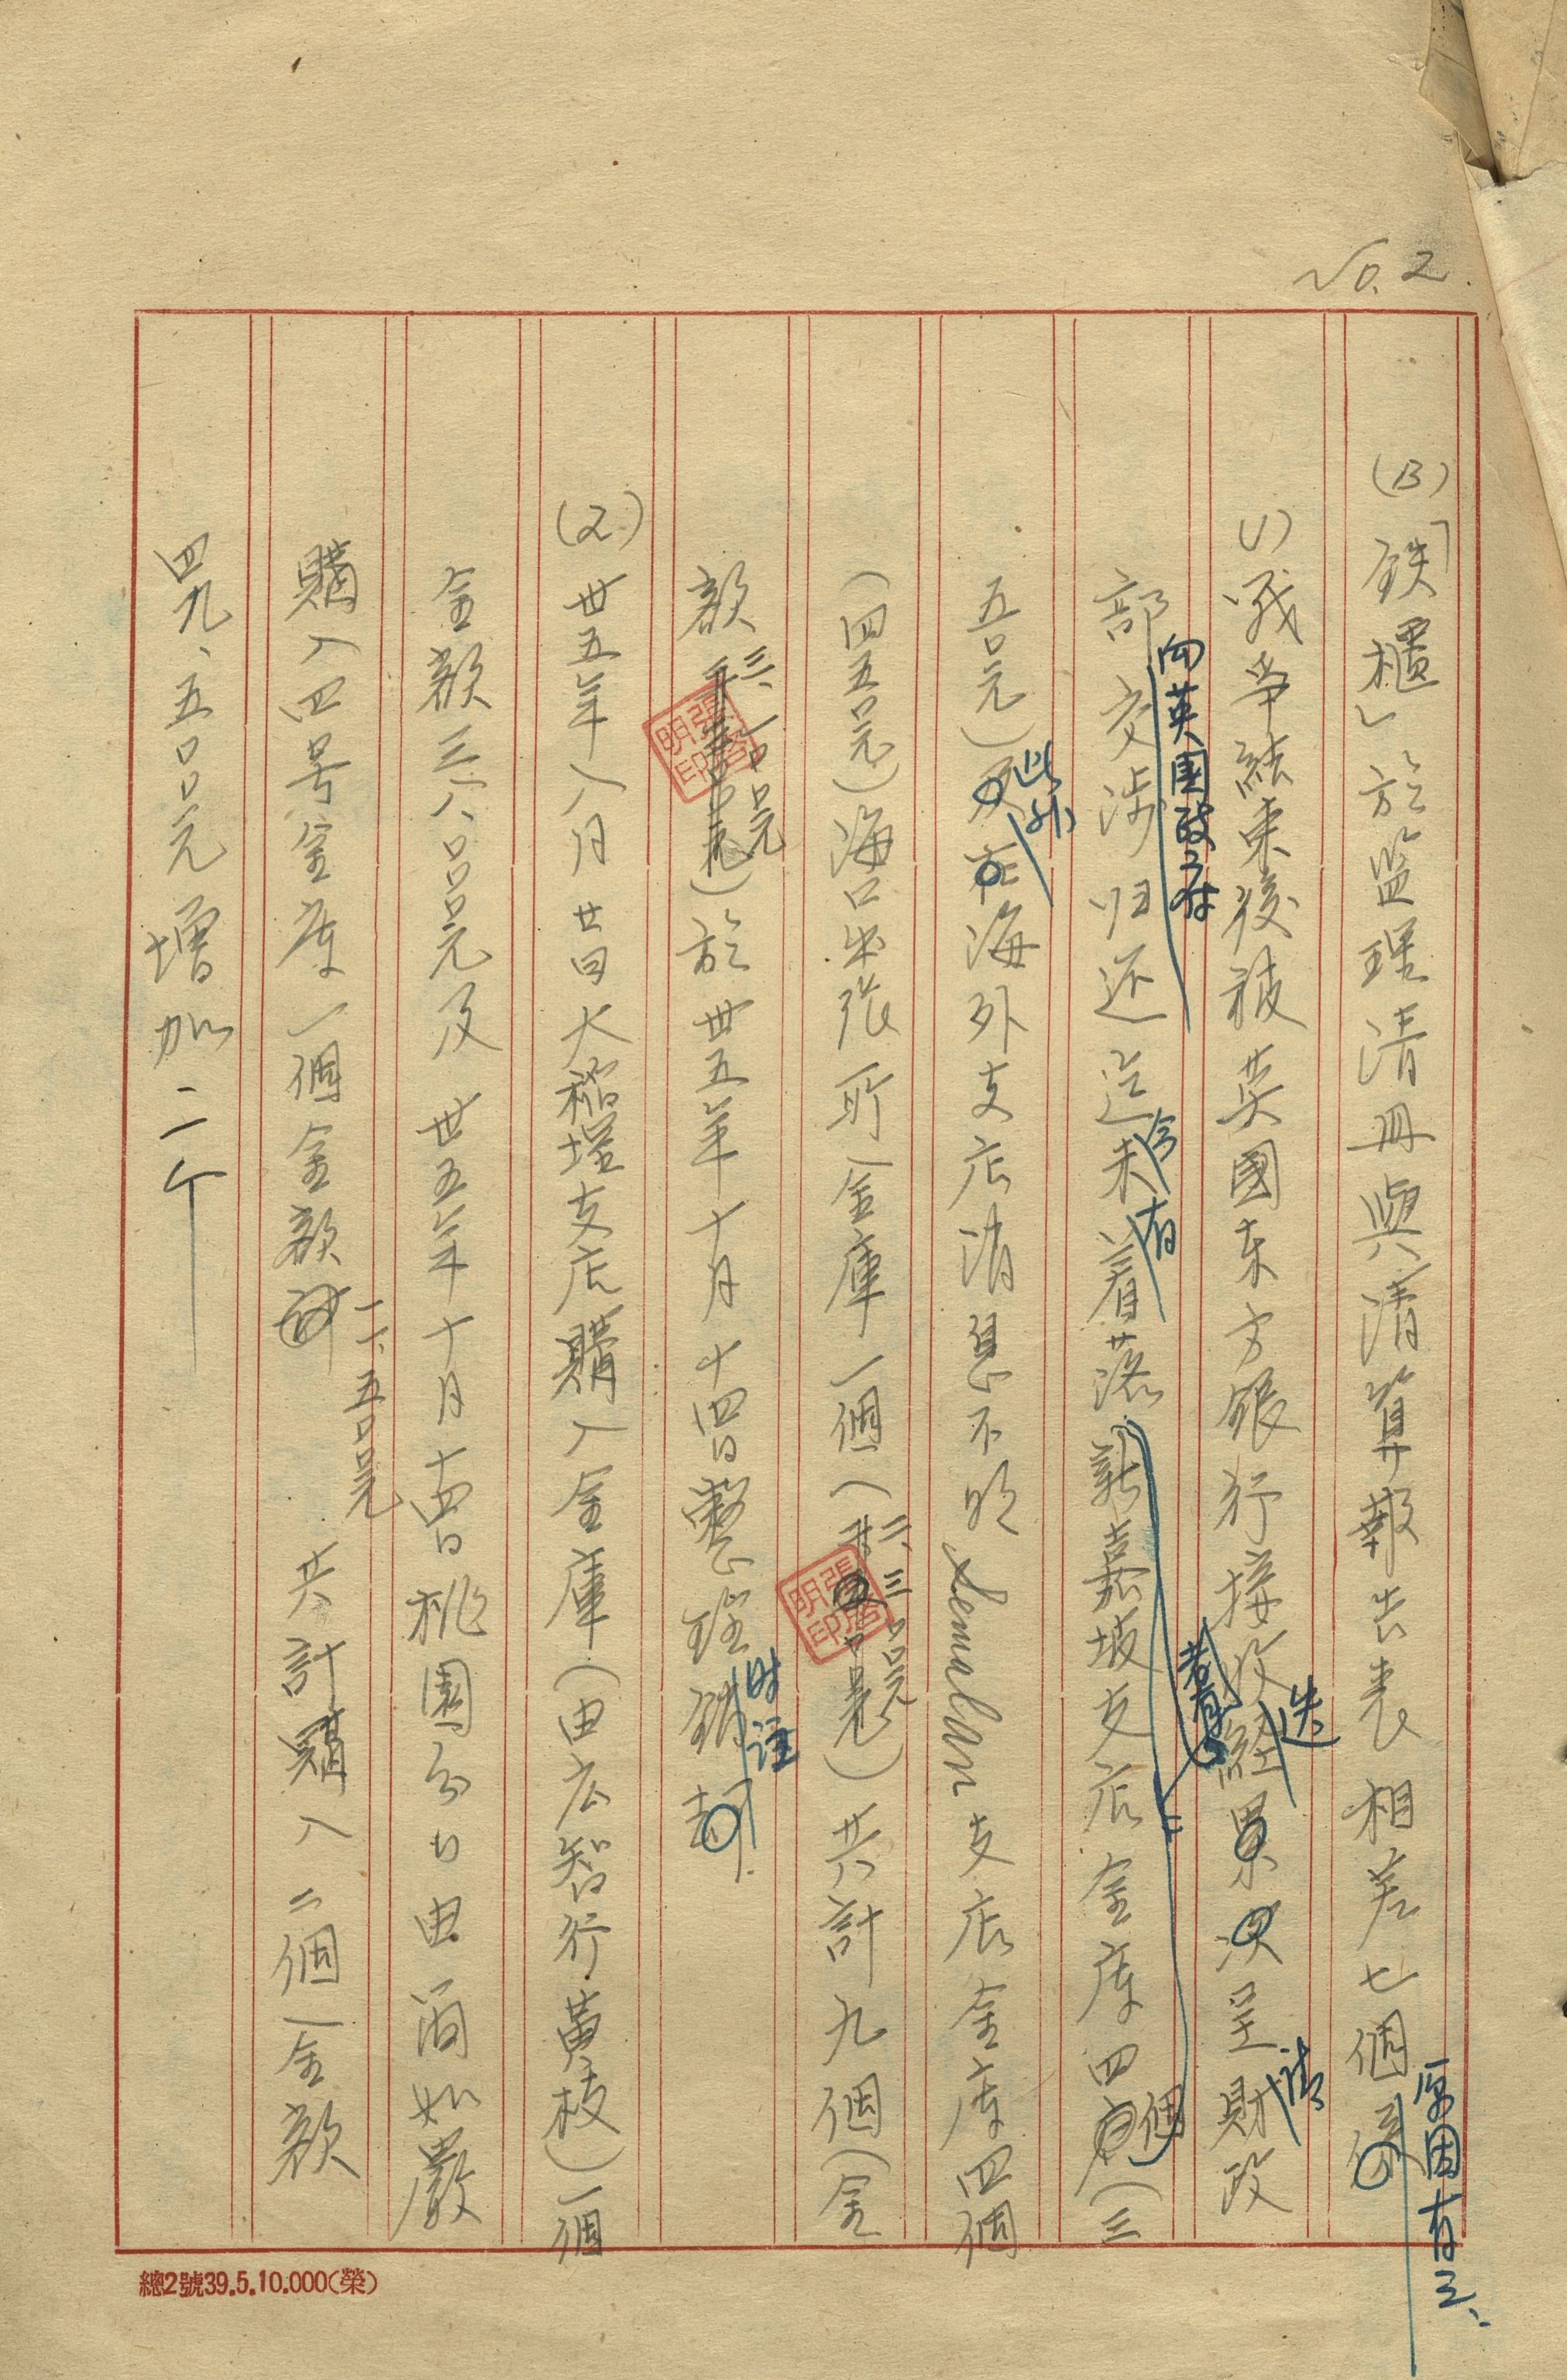 No. 2.
(B)「鉄櫃」於監理清冊與清算報告表相差七個係
原因有三:
(1)戰爭結束後被英國东方銀行接收經累次呈財政
迭
請
部交涉归还迄未着落新嘉坡支店金庫四個(三
向英国政府
今
有
五〇元)及在海外支店消息不明Semalan支店金庫四個
此外
(四五〇元)海口出張所金庫一個(
二、三〇〇元
)共計九個(金
額
三、一〇〇元
)於卅五年十月十四日整理銷却
时註
(2)卅五年八月廿四日大稻埕支店購入金庫(由広智行黃枝)一個
金額三八、〇〇〇元及 卅五年十月十四日桃園分行由酒如嚴
購入四号金庫一個金額
一一、五〇〇元
共計購入二個(金額
四九、五〇〇元增加二个
總2號39.5.10.000(榮)